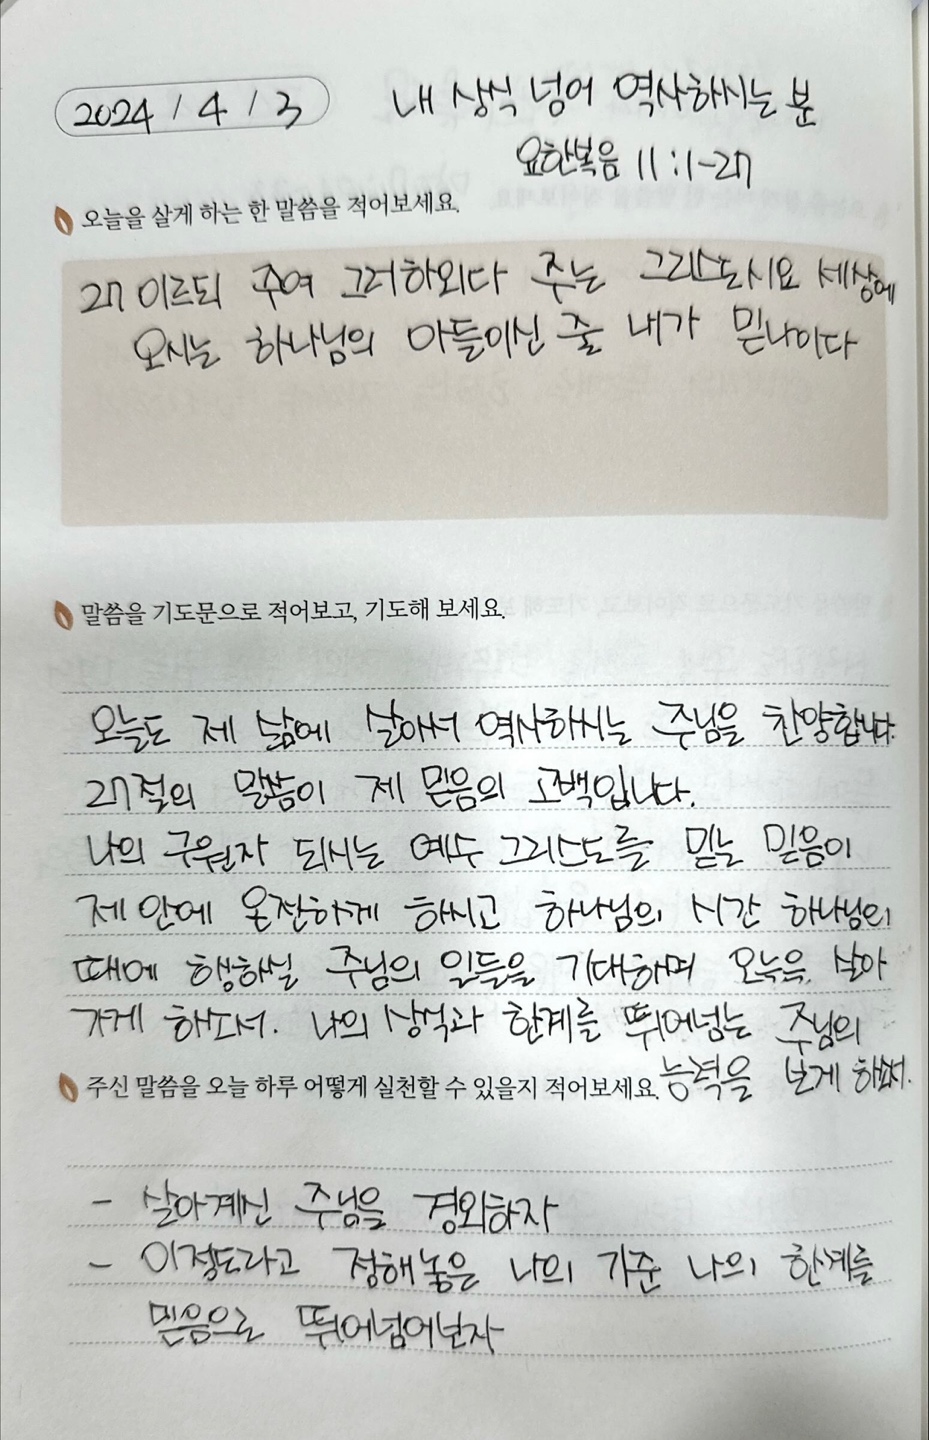 2024 / 4 / 3
내 상식 넘어 역사하시는 분
요한복음 11:1-27
오늘을 살게 하는 한 말씀을 적어보세요.
27 이르되 주여 그러하외다 주는 그리스도시요 세상에
오시는 하나님의 아들이신 줄 내가 믿나이다
말씀을 기도문으로 적어보고, 기도해 보세요.
오늘도 제 삶에 살아서 역사하시는 주님을 찬양합니다.
27절의 말씀이 제 믿음의 고백입니다.
나의 구원자 되시는 예수 그리스도를 믿는 믿음이
제 안에 온전하게 하시고 하나님의 시간 하나님의
때에 행하실 주님의 일들을 기대하며 오늘을 살아
가게 하소서. 나의 상식과 한계를 뛰어넘는 주님의
능력을 보게 하소서.
주신 말씀을 오늘 하루 어떻게 실천할 수 있을지 적어보세요.
- 살아계신 주님을 경외하자
- 이정도라고 정해놓은 나의 기준 나의 한계를
믿음으로 뛰어넘어보자